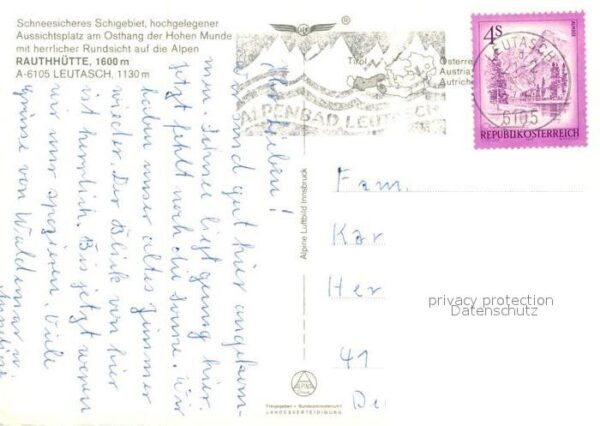 Schneesicheres Schigebiet, hochgelegener
Aussichtsplatz am Osthang der Hohen Munde
mit herrlicher Rundsicht auf die Alpen
RAUTHHÜTTE, 1600 m
A-6105 LEUTASCH, 1130 m
®
Tirol
Österre
Austria
Autrich
ALPENBAD LEUTASCH
4S
LEUTASCH
6105
REPUBLIK ÖSTERREICH
Ihr Lieben!
wir sind gut hier angekom-
men. Schnee liegt genug hier.
Jetzt fehlt noch die Sonne. Wir
haben unser altes Zimmer
wieder. Der Blick von hier
ist herrlich. Bis jetzt waren
wir nur spazieren. Viele
Grüsse von Waldemar u.
Annelies
Alpine Luftbild Innsbruck
Fam.
Kar
Her
41
De
privacy protection
Datenschutz
Freigegeben - Bundesministerium f.
LANDESVERTEIDIGUNG